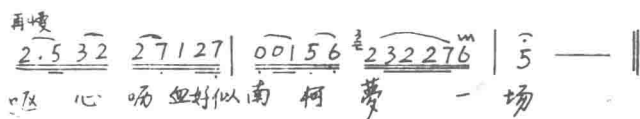 再慢
2.5 32 27127 | 00156 232276 | 5 —— ‖
呕心呖血好似南柯夢一场